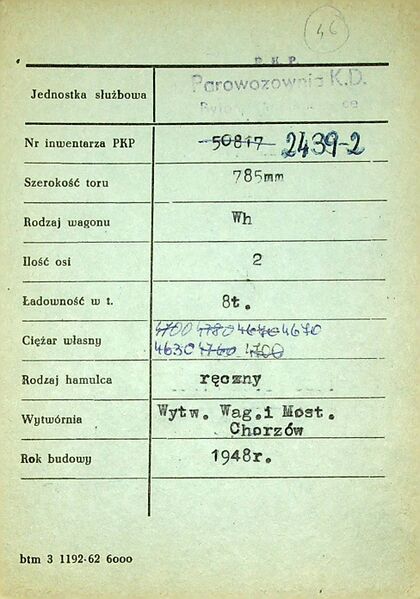 46
P.K.P.
Jednostka służbowa Parowozownia K.D.
Nr inwentarza PKP 50817 2439-2
Szerokość toru 785mm
Rodzaj wagonu Wh
Ilość osi 2
Ładowność w t. 8t.
4700 4780 4640 4670
Ciężar własny
4630 4760 4700
Rodzaj hamulca ręczny
Wytwórnia Wytw. Wag.i Most.
Chorzów
Rok budowy 1948r.
btm 3 1192-62 6000